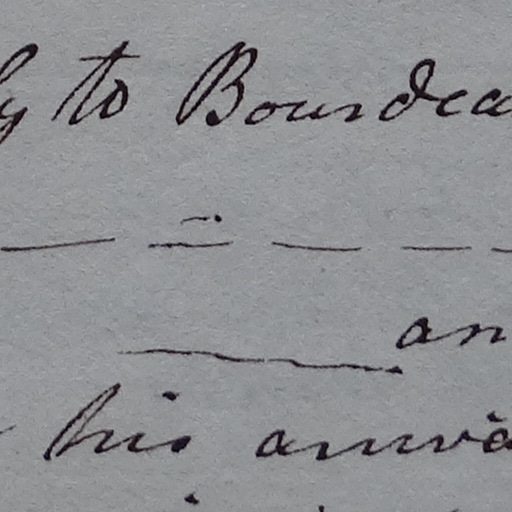 to Bourdea
— — — — —
an
his arriva